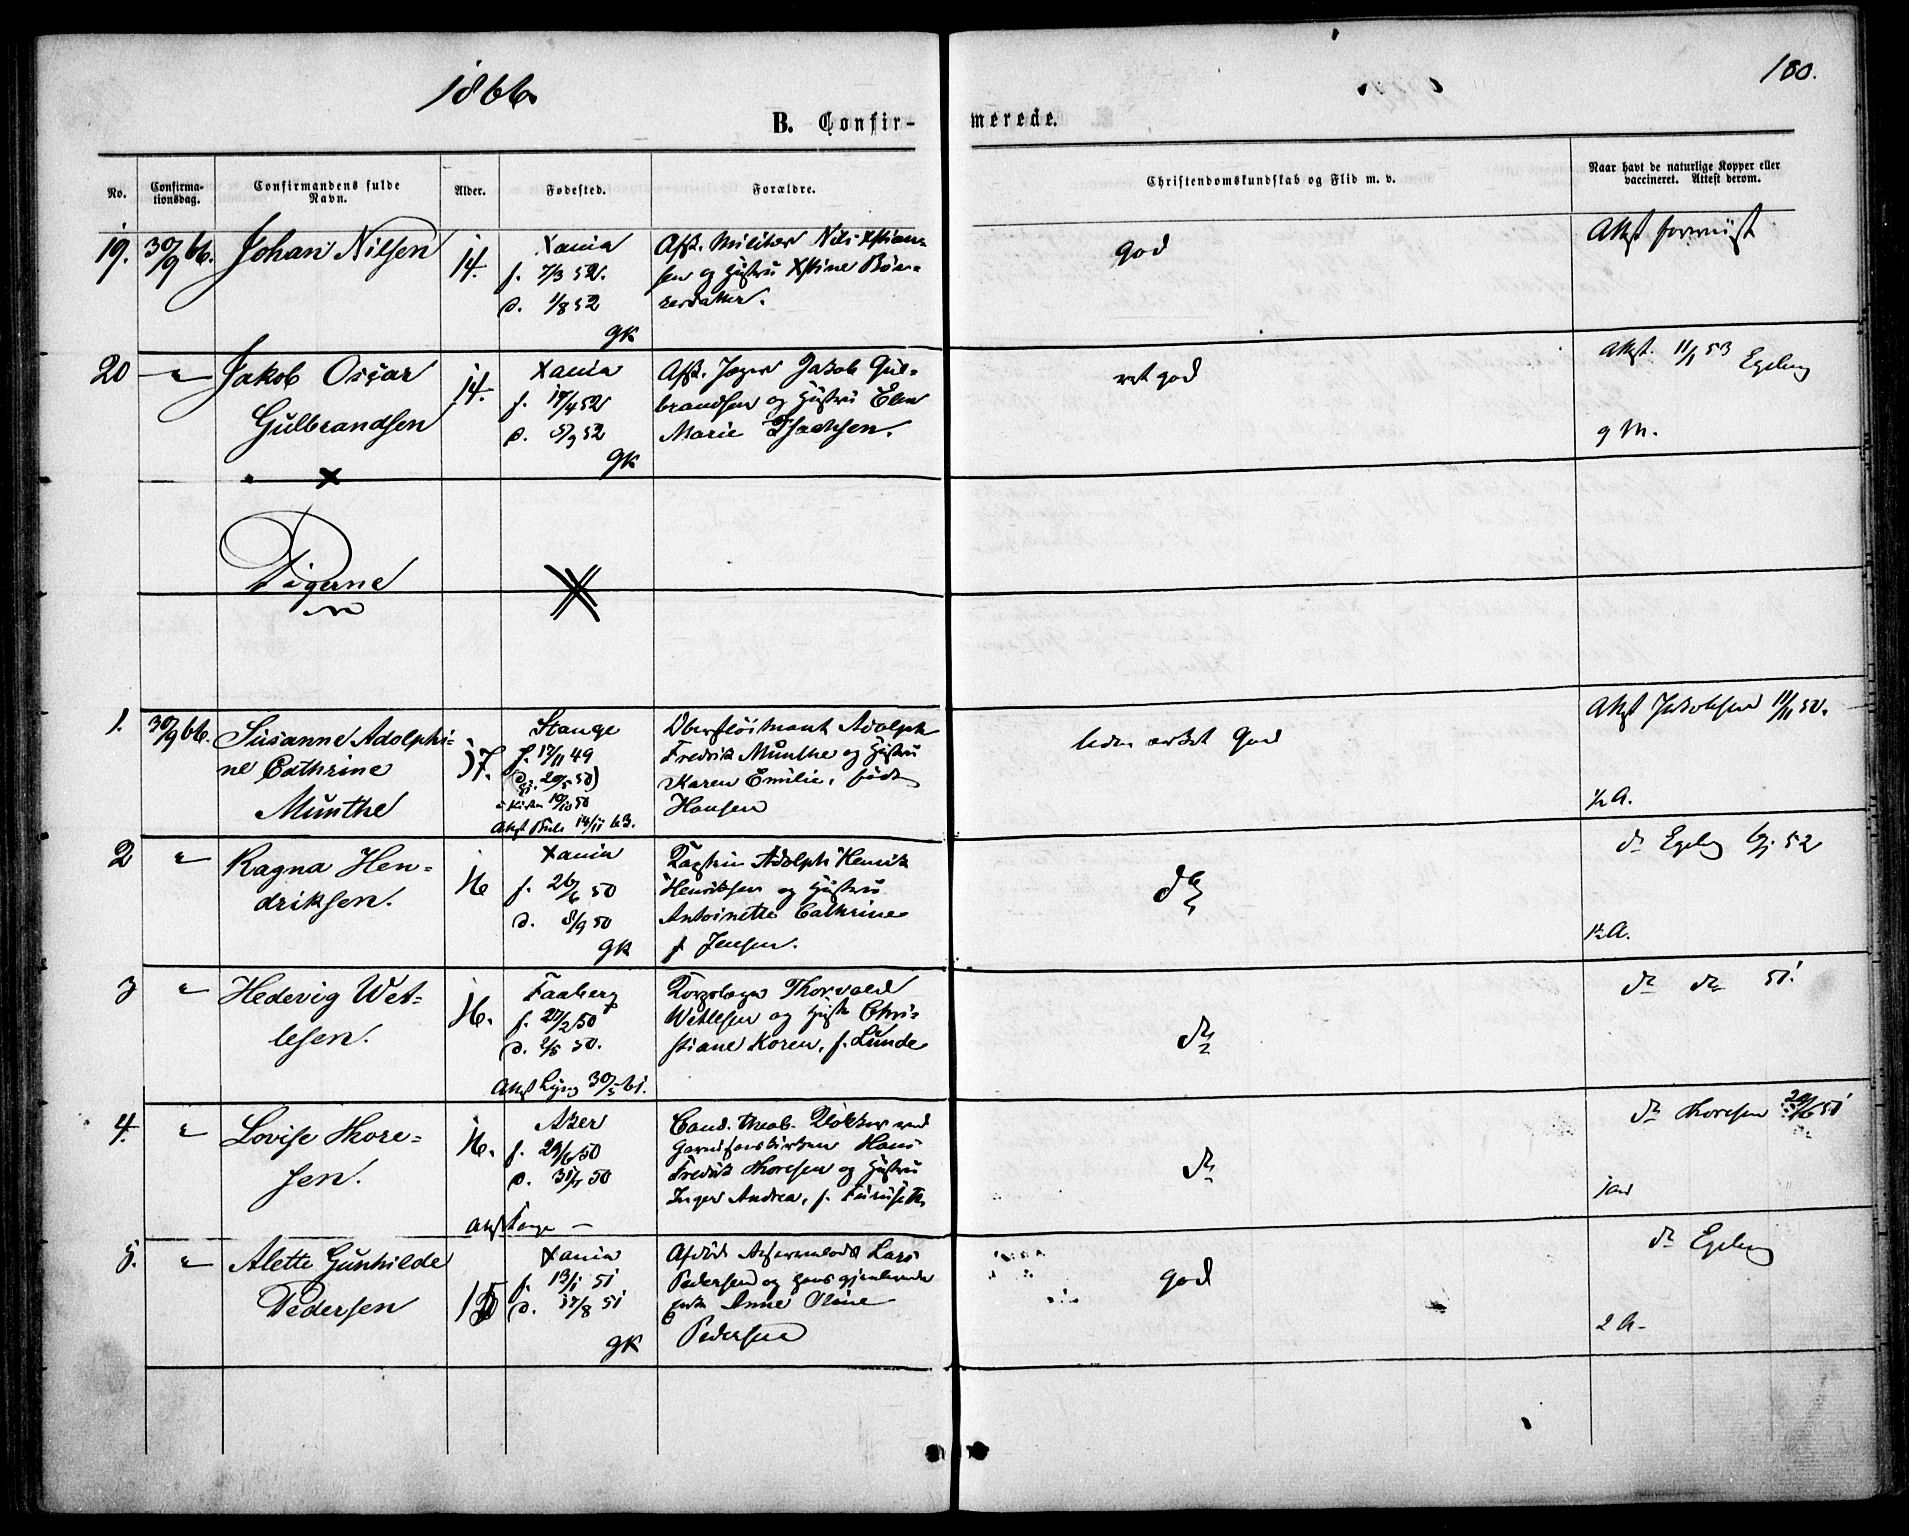 1866.
180.
B. Confir-
merede.
No.
Confirma-
tionsdag.
Confirmandens fulde
Navn.
Alder.
Fødested.
Forældre.
Christendomskundskab og Flid m. v.
Naar havt de naturlige Kopper eller
vaccineret. Attest derom.
19.
30/9 66.
Johan Nilsen
14.
Xania
f. 7/3 52.
d. 1/8 52
gk
Afsk. Militær Nils Xstian-
sen og Hustru Xstine Bør-
resdatter.
god
Attest forevist
20
"
Jakob Oscar
Gulbrandsen
14.
Xania
f. 17/4 52
d. 5/9 52
gk
Afsk. Jæger Jakob Gul-
brandsen og Hustru Elen
Marie Isachsen.
ret god
Attst. 11/1 53 Egeberg
9 M.
Pigerne
1.
30/9 66.
Susanne Adolphi-
ne Cathrine
Munthe
17.
Stange
f. 12/11 49
d. 20/5 50)
i Kirken 10/10 50
Attst 14/11 63.
Oberstløitnant Adolph
Fredrik Munthe og Hustru
Karen Emilie, født
Hansen
god
Attst Jakobsen 11/11 50.
1/2 A.
2
"
Ragna Hen-
driksen.
16
Xania
f. 26/6 50
d. 8/9 50
gk
Adolph Henrik
Henriksen og Hustru
Antoinette Cathrine
f. Jensen.
do
do Egeberg 52
3
"
Hedevig Wet-
lesen.
16.
Faaberg
f. 21/2 50
d. 2/5 50.
Attst Lyng 30/5 61.
Korpslæge Thorvald
Wetlesen og Hustr Chri-
stiane Koren, f. Lunde
do
do do 51.
4.
"
Lovise Thore-
sen.
16.
Aker
f. 29/6 50
d. 31/7 50
Cand. theol. Klokker ved
Garnisonskirken Hans
Fredrik Thoresen og Hustru
Inger Andrea, f. Furuseth
do
do Thoresen 20/6 51
5.
"
Alette Gunhilde
Pedersen
15
Xania
f. 13/1 51
d. 17/8 51
gk
Afdøde Lars
Pedersen og hans gjenlevende
Enke Anne Oline
Pedersen
god
do Egeberg
2 A.